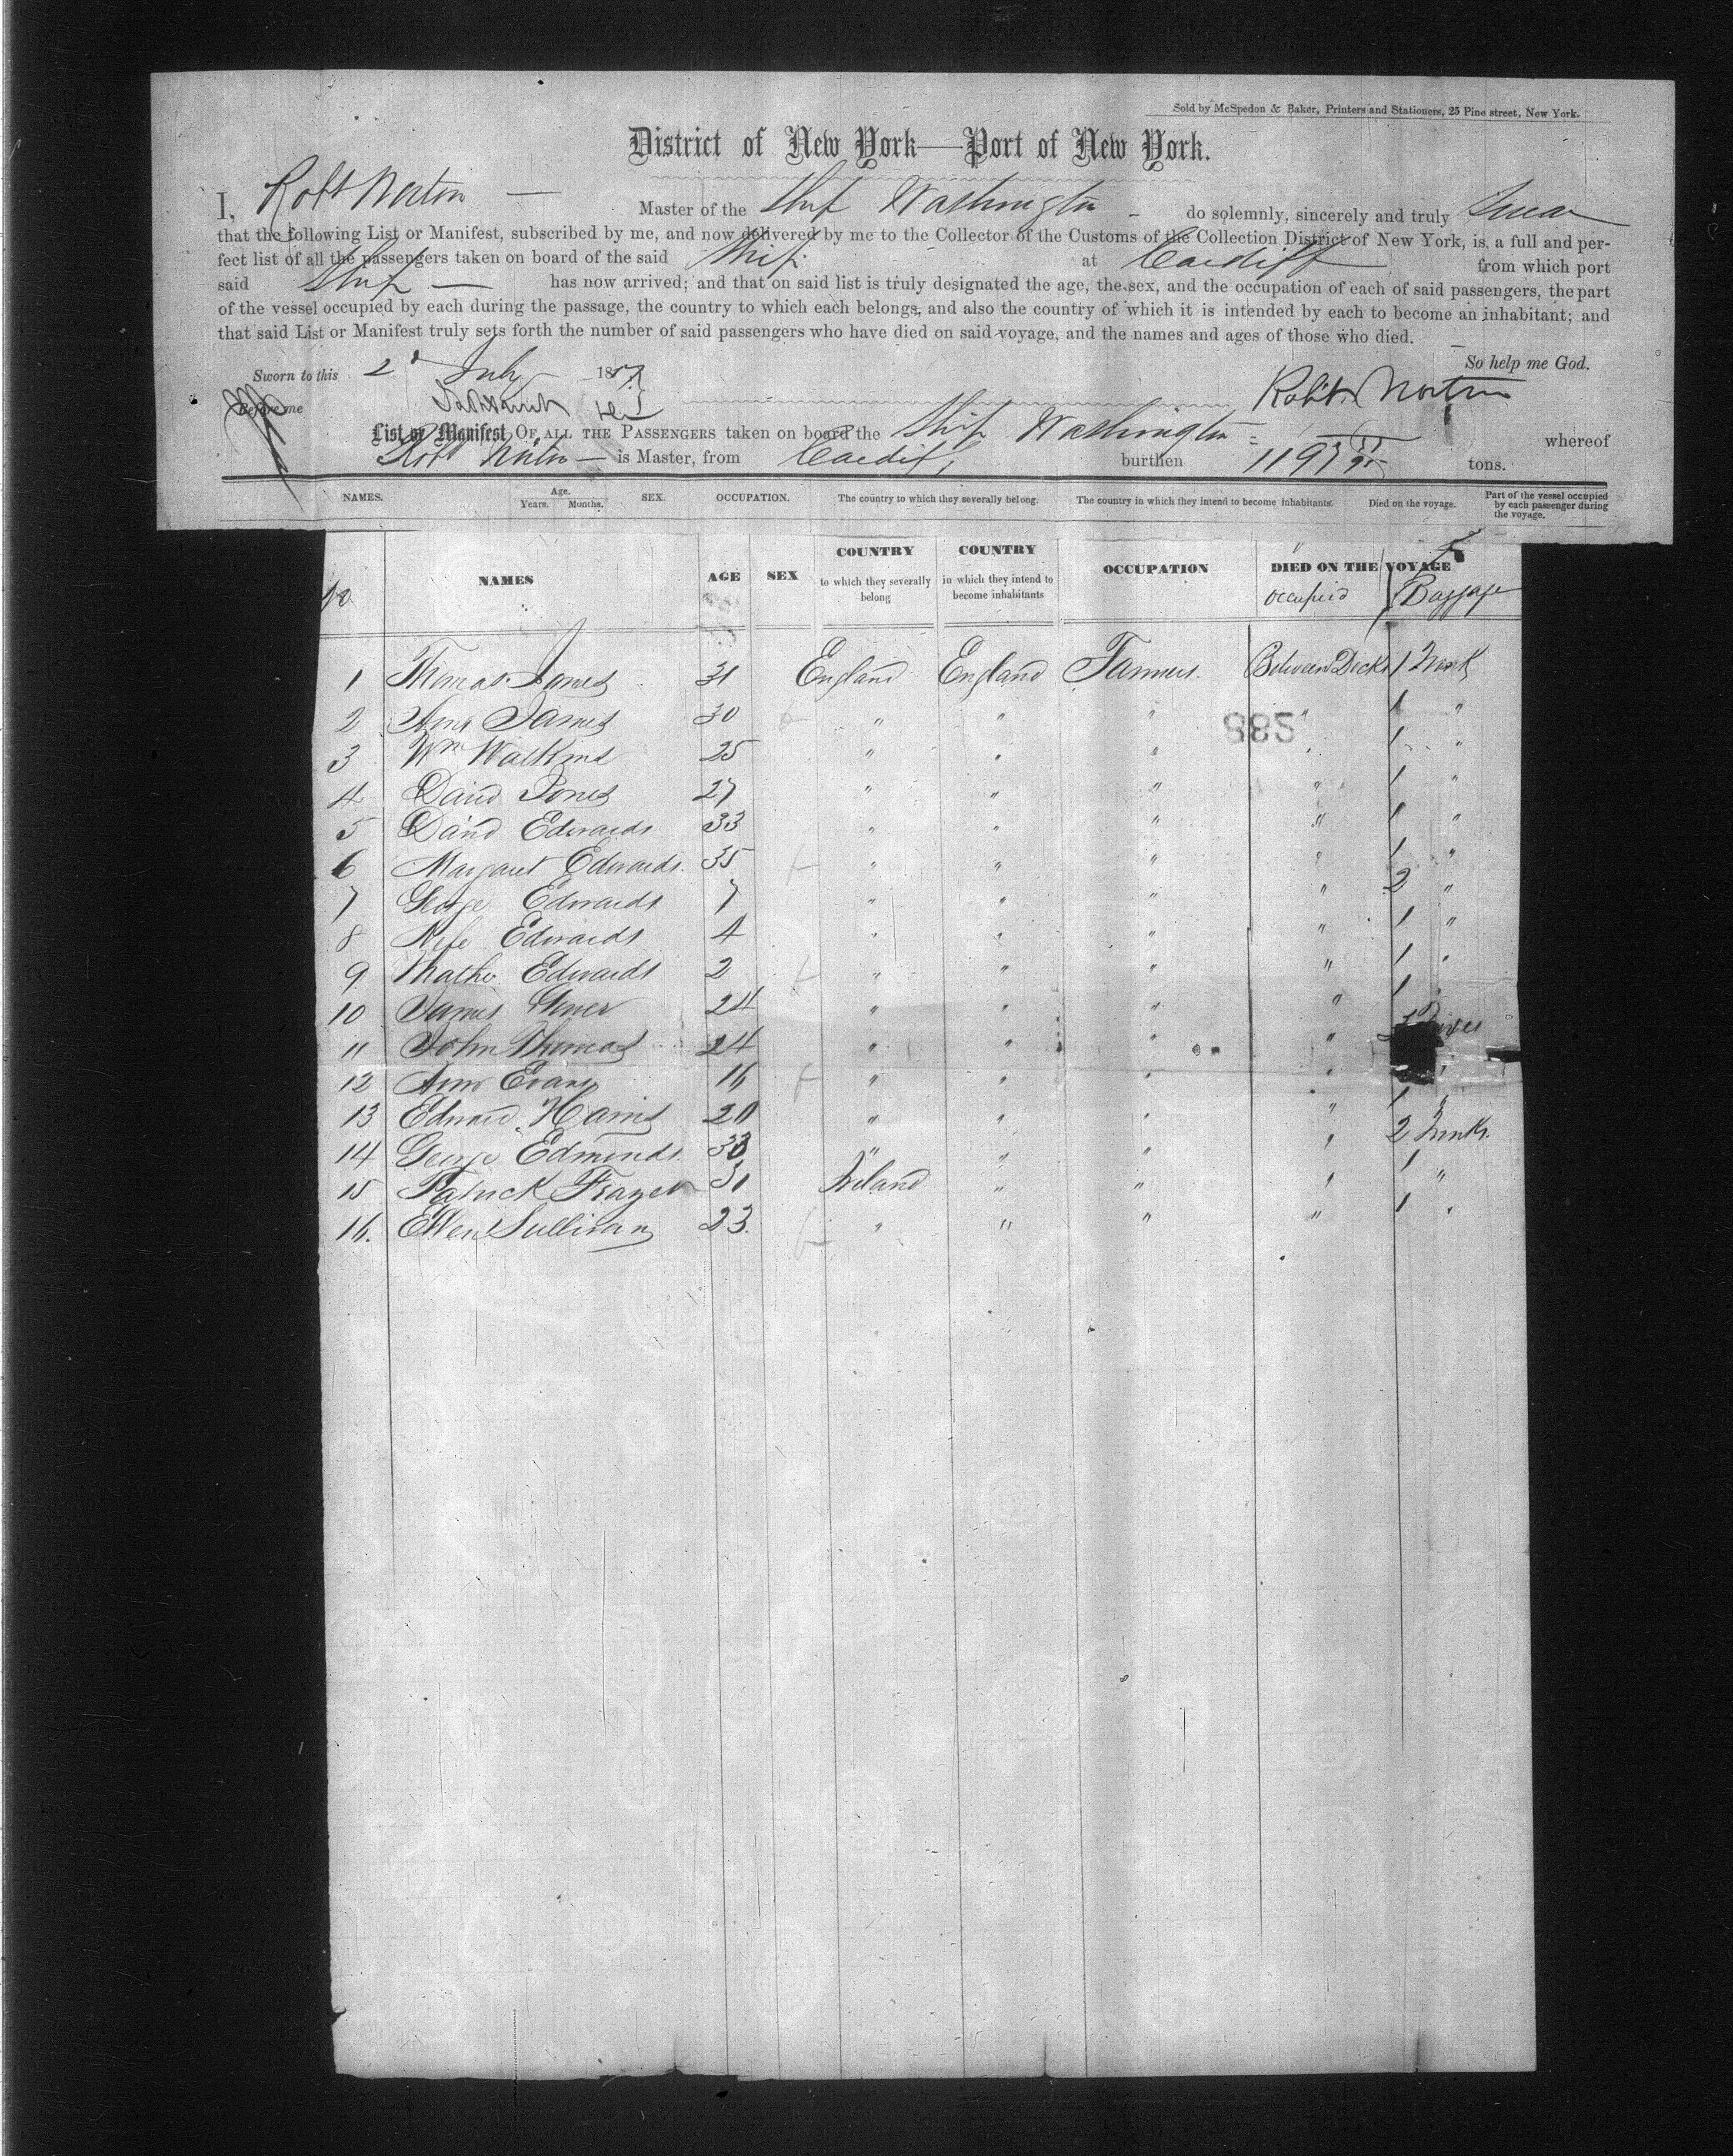 Sold by McSpedon & Baker, Printers and Stationers, 25 Pine street, New York.
District of New York—Port of New York.
I, Robt Norton — Master of the Ship Washington - do solemnly, sincerely and truly Swear
that the following List or Manifest, subscribed by me, and now delivered by me to the Collector of the Customs of the Collection District of New York, is a full and per-
fect list of all the passengers taken on board of the said Ship at Cardiff from which port
said Ship — has now arrived; and that on said list is truly designated the age, the sex, and the occupation of each of said passengers, the part
of the vessel occupied by each during the passage, the country to which each belongs, and also the country of which it is intended by each to become an inhabitant; and
that said List or Manifest truly sets forth the number of said passengers who have died on said voyage, and the names and ages of those who died.
So help me God.
Sworn to this 2d July 1857
Before me Robt. Norton
List or Manifest OF ALL THE PASSENGERS taken on board the Ship Washington whereof
Robt Norton — is Master, from Cardiff, burthen 1197 tons.
NAMES. Age. Years. Months. SEX. OCCUPATION. The country to which they severally belong. The country in which they intend to become inhabitants. Died on the voyage. Part of the vessel occupied by each passenger during the voyage.
No. NAMES AGE SEX COUNTRY to which they severally belong COUNTRY in which they intend to become inhabitants OCCUPATION DIED ON THE VOYAGE
occupied Baggage
1 Thomas Jones 31 England England Farmers Between Decks 1 Trunk
2 Ann James 30 " " " " 1 "
288
3 Wm Watkins 25 " " " " 1 "
4 David Jones 27 " " " " 1 "
5 David Edwards 33 " " " " 1 "
6 Margaret Edwards 35 " " " " 1 "
7 George Edwards 7 " " " " 2 "
8 Edwards 4 " " " " 1 "
9 Edwards 2 " " " " 1 "
10 James 24 " " " " 1
11 John Thomas 24 " " " "
12 Ann Evans 16 " " " "
13 Edward Harris 20 " " " " 1 "
14 George Edmunds 33 " " " " 2 Trunks.
15 Patrick Frazer 31 Ireland " " " 1 "
16. Ellen Sullivan 23 " " " " 1 "